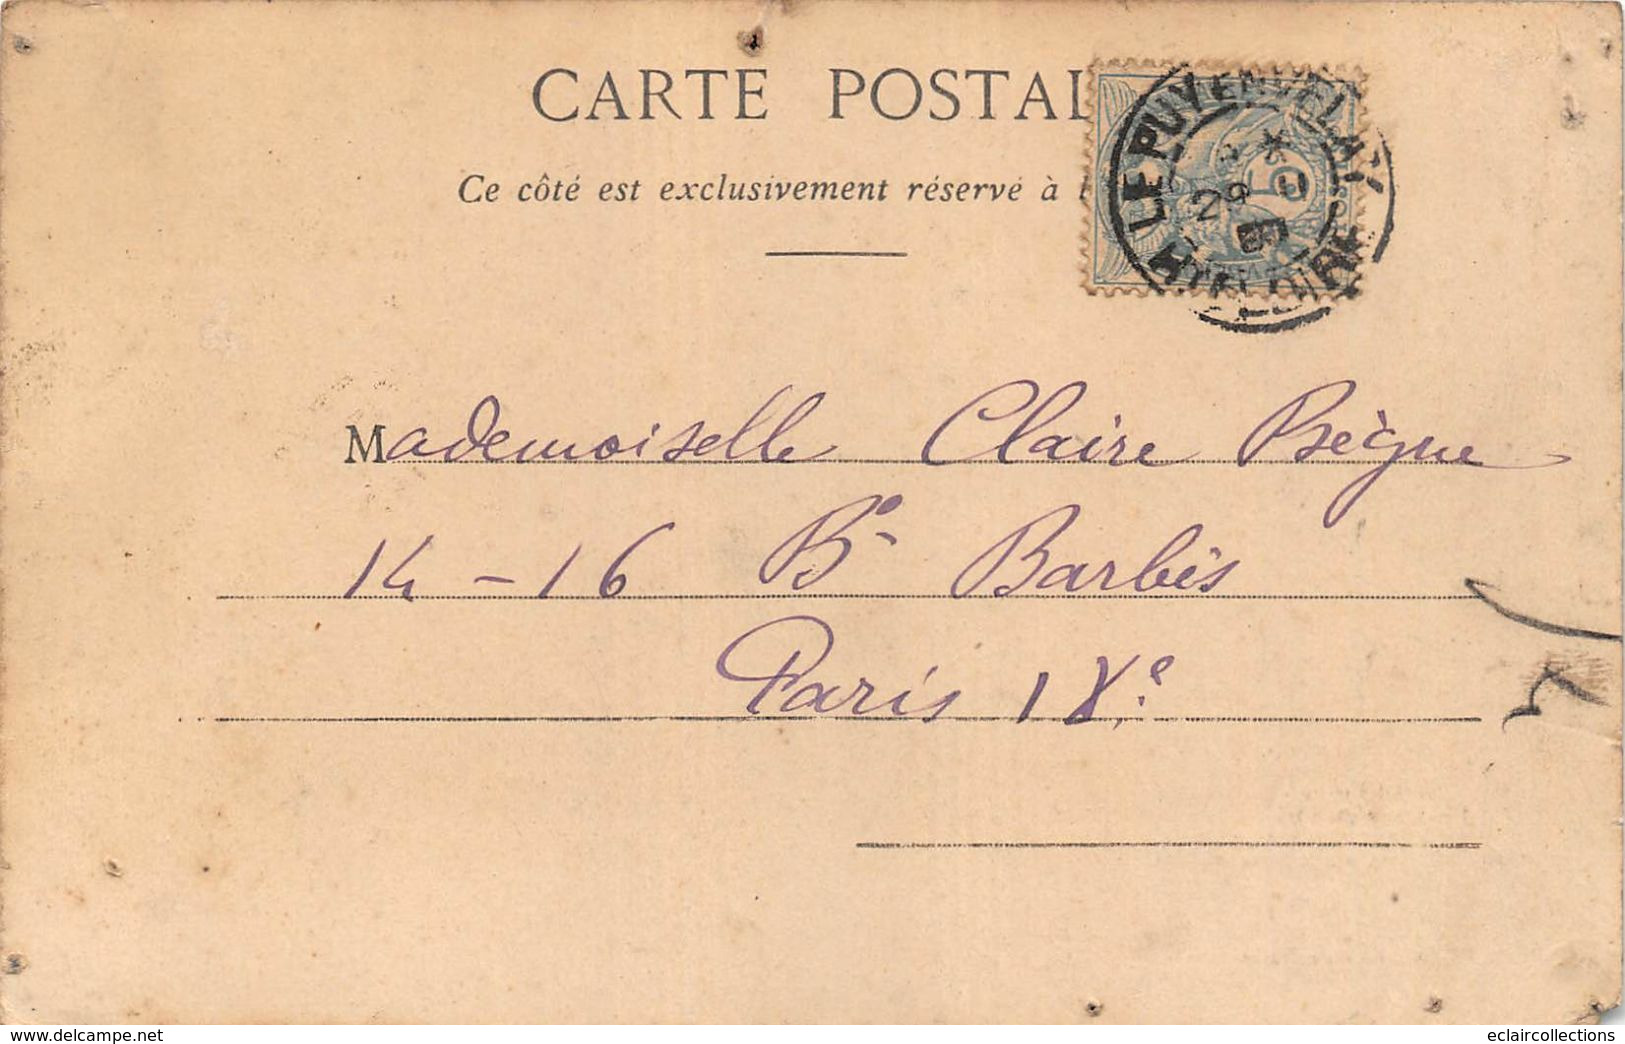 CARTE POSTAL
Ce côté est exclusivement réservé à
LE PUY EN VELAY
29
Mademoiselle Claire Bègne
14 - 16 Bd Barbès
Paris 18e
www.delcampe.net
eclaircollections